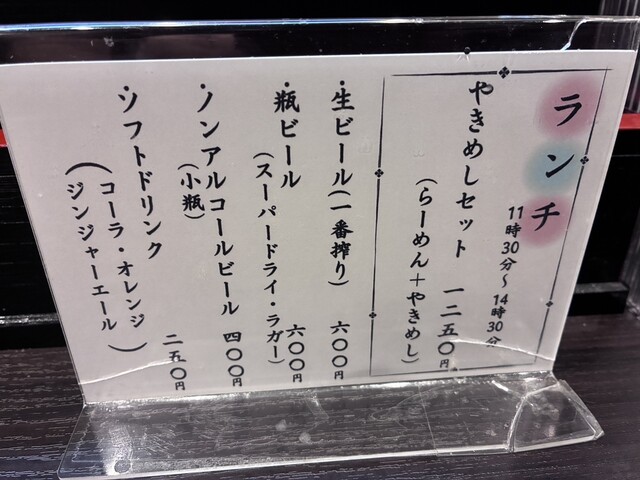 ランチ
11時30分～14時30分
やきめしセット 一二五〇円
(らーめん+やきめし)
・生ビール(一番搾り) 六〇〇円
・瓶ビール
(スーパードライ・ラガー) 六〇〇円
・ノンアルコールビール 四〇〇円
(小瓶)
・ソフトドリンク 二五〇円
(コーラ・オレンジ
ジンジャーエール)